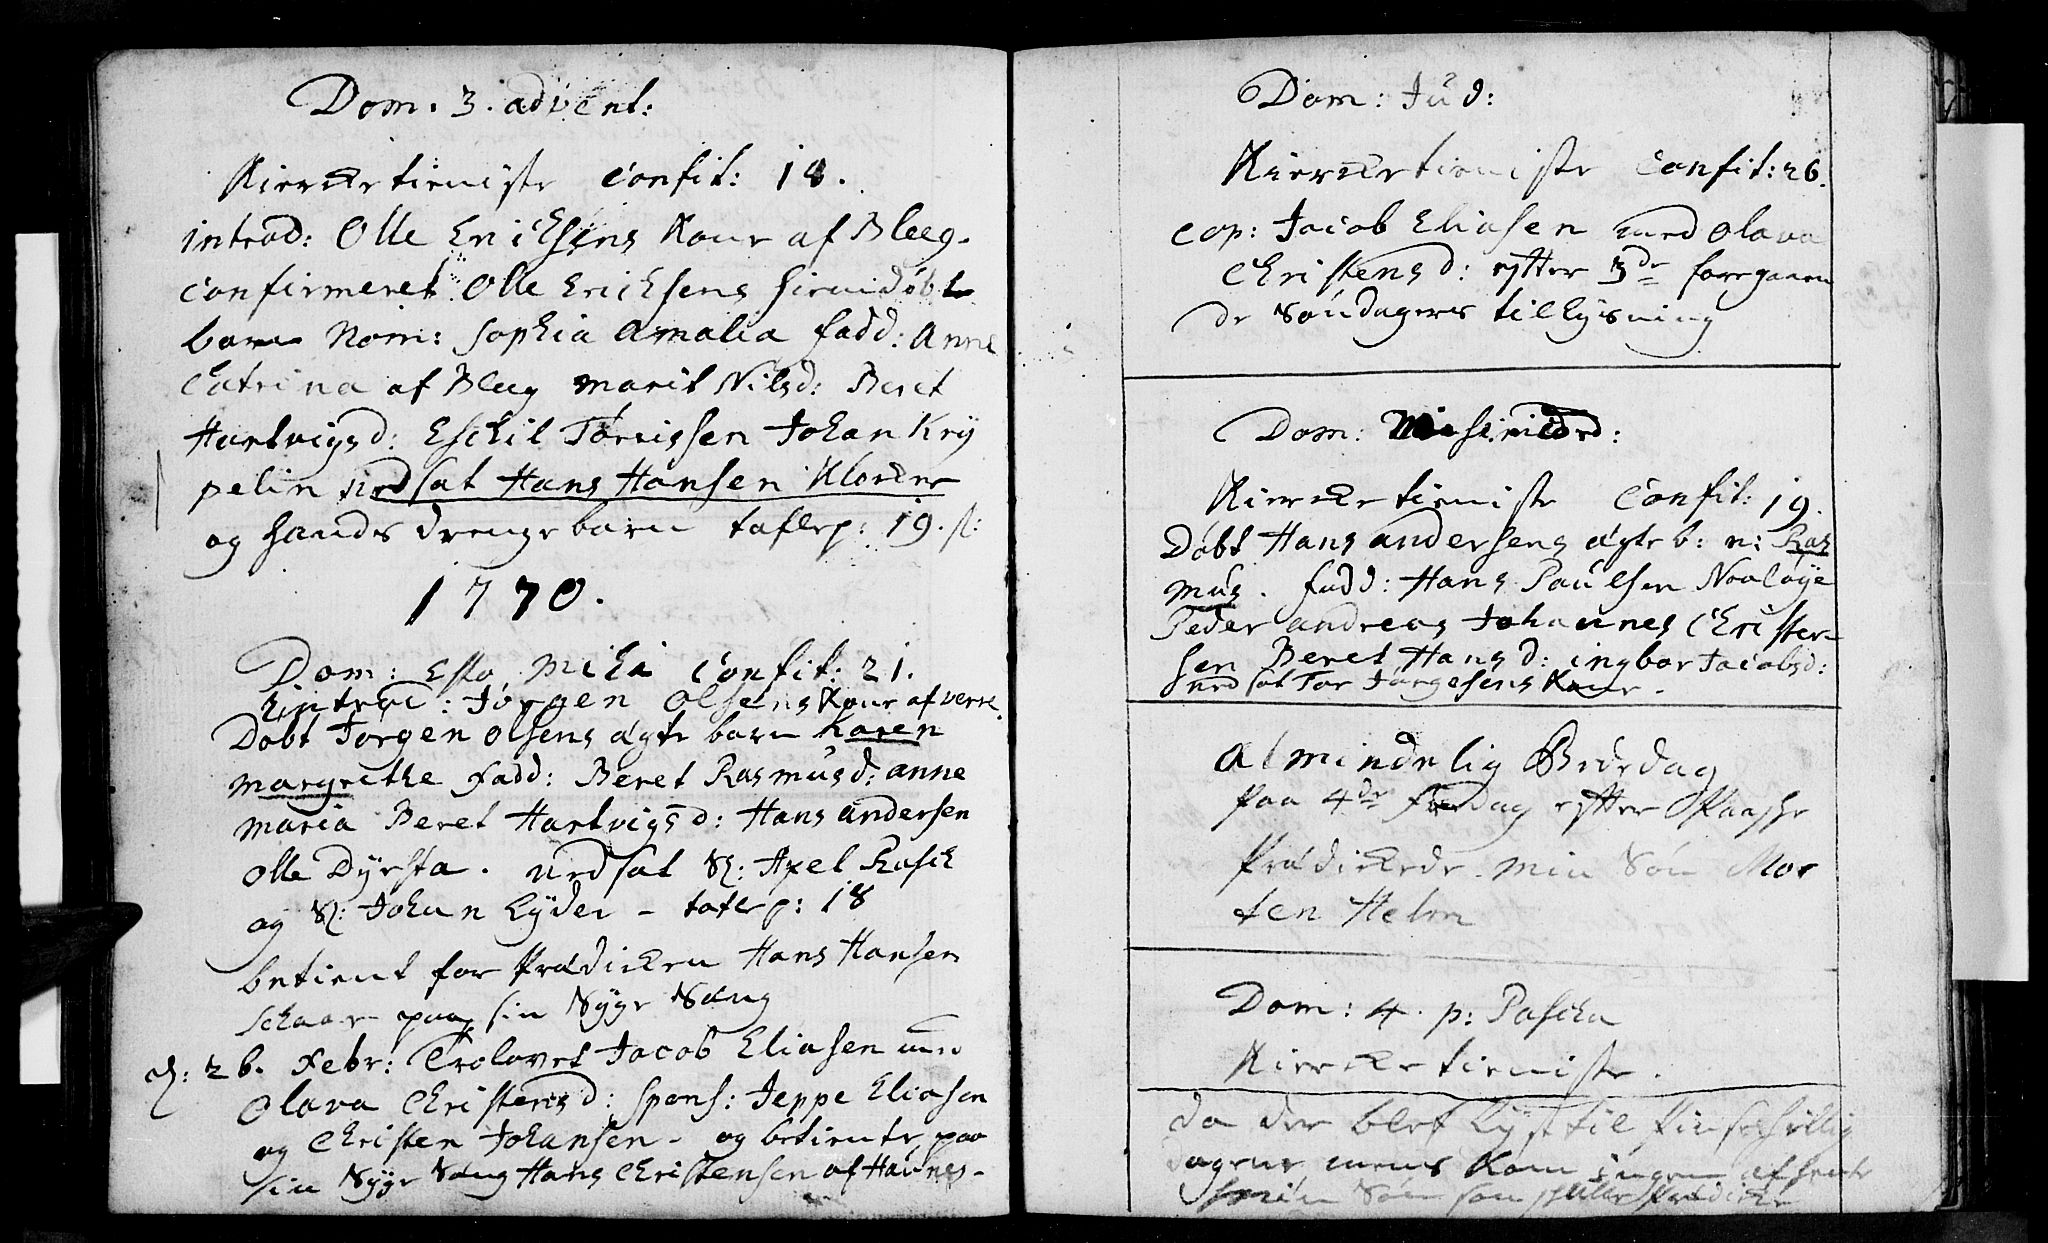 Dom. 3. advent:
Kierketieniste Confit: 18.
introd: Olle Ericksens Kone af Bleeg.
Confirmeret Olle Ericksens hiemdøbt
barn Nom: Sophia Amalia fadd: Anne
Catrina af Bleeg Marit Nilsd: Beret
Hartvigsd: Eschil Tørrissen Johan Kry
pelin nedsat Hans Hansen Klocker
og hands drenge barn taflep: 19. s:
1770.
Dom: Esto Mihi Confit: 21.
introd: Jørgen Olsens Kone af
Døbt Jørgen Olsens ægte barn Karen
Margrethe Fadd: Beret Rasmusd: Anne
Maria Beret Hartvigsd: Hans Andersen
Olle Dyrsta. nedsat S: Axel Rasch
og S: Johan Lyder - taflep: 18
betient for Prædicken Hans Hansen
Schaar paa sin Syge Sæng
d: 26. Febr: Trolovet Jacob Eliasen med
Olava Christensd: Spons: Jeppe Eliasen
og Christen Johansen - og betiente paa
sin Syge Sæng Hans Christensen af Hafnes -
Dom: Jud:
Kierketieniste Confit: 26.
Cop: Jacob Eliasen med Olava
Christensd: efter 3de foregaaen
de Søndagers tillysning
Dom: Misericord:
Kierketieniste Confit: 19.
Døbt Hans Andersens ægte b: n: Ras
mus. fadd: Hans Paulsen
Peder Andreas Johannes Christen
sen Beret Hansd: ingbor Jacobsd:
nedsat Tor Jørgesens Kone.
Almindelig Bededag
paa 4de fredag efter Paaske
Prædickede min Søn Mor
ten Helm
Dom: 4. p: Pascha
Kierketieniste.
da der blef lyst til Pinsehellig
dagene mens Kom ingen
min Søn som skulle Prædicke